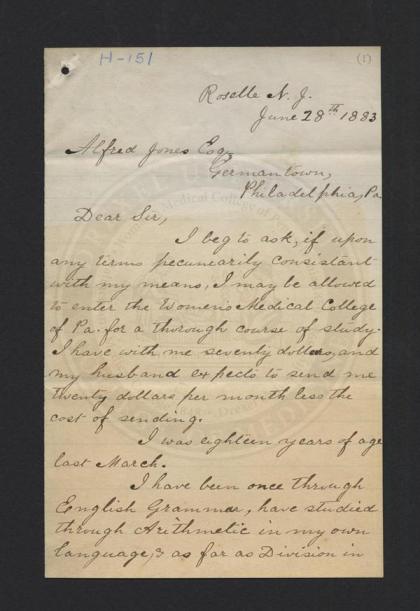 H-151
(1)
Roselle N. J.
June 28th 1883
Alfred Jones Esq,
Germantown,
Philadelphia, Pa
Dear Sir,
I beg to ask, if upon
any terms pecunearily consistant
with my means, I may be allowed
to enter the Women's Medical College
of Pa. for a thorough course of study.
I have with me seventy dollars, and
my husband expects to send me
twenty dollars per month less the
cost of sending.
I was eighteen years of age
last March.
I have been once through
English Grammar, have studied
through Arithmetic in my own
language, & as far as Division in
Medical College of